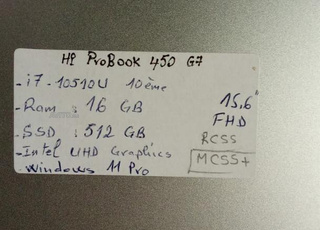 HP ProBook 450 G7
- i7 - 10510U 10ème
- Ram : 16 GB
15,6"
FHD
- SSD : 512 GB
RCSS
- Intel UHD Graphics
MCSS+
- Windows 11 Pro